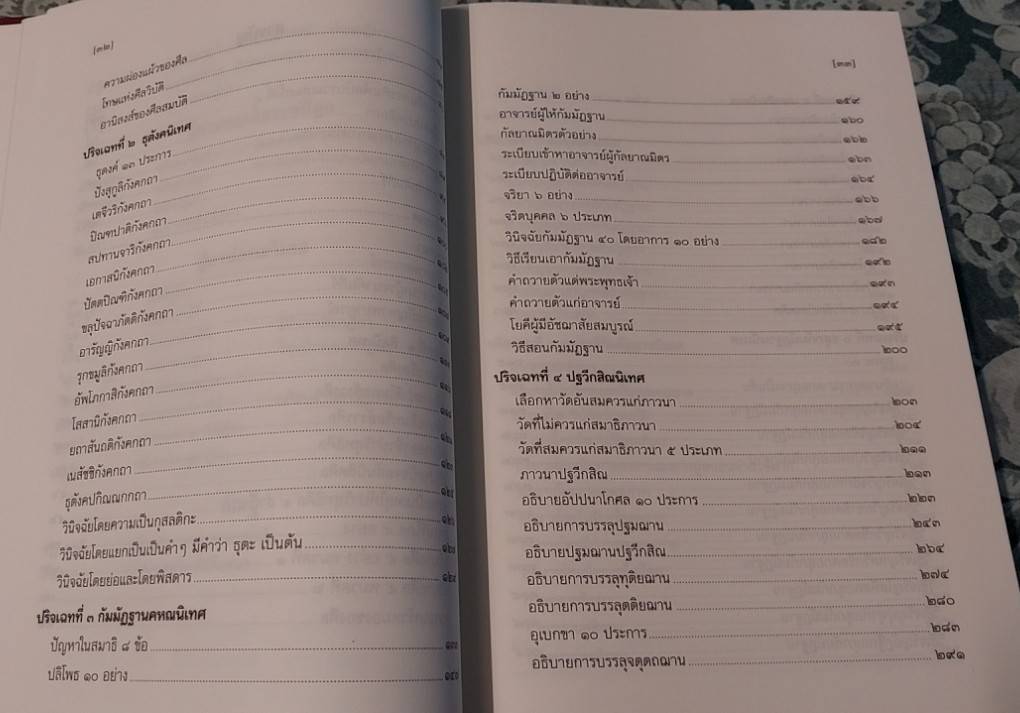 [๓๒]
ความผ่องแผ้วของศีล
โทษแห่งศีลวิบัติ
อานิสงส์ของศีลสมบัติ
ปริจเฉทที่ ๒ ธุตังคนิเทศ
ธุดงค์ ๑๓ ประการ
ปังสุกูลิกังคกถา
เตจีวริกังคกถา
ปิณฑปาติกังคกถา
สปทานจาริกังคกถา
เอกาสนิกังคกถา
ปัตตปิณฑิกังคกถา
ขลุปัจฉาภัตติกังคกถา
อารัญญิกังคกถา
รุกขมูลิกังคกถา
อัพโภกาสิกังคกถา
โสสานิกังคกถา
ยถาสันถติกังคกถา
เนสัชชิกังคกถา
ธุตังคปกิณณกกถา
วินิจฉัยโดยความเป็นกุสลติกะ
วินิจฉัยโดยแยกเป็นเป็นคำๆ มีคำว่า ธุตะ เป็นต้น
วินิจฉัยโดยย่อและโดยพิสดาร
ปริจเฉทที่ ๓ กัมมัฏฐานคหณนิเทศ
ปัญหาในสมาธิ ๘ ข้อ
ปลิโพธ ๑๐ อย่าง
[๓๓]
กัมมัฏฐาน ๒ อย่าง ๑๕๙
อาจารย์ผู้ให้กัมมัฏฐาน ๑๖๐
กัลยาณมิตรตัวอย่าง ๑๖๒
ระเบียบเข้าหาอาจารย์ผู้กัลยาณมิตร ๑๖๓
ระเบียบปฏิบัติต่ออาจารย์ ๑๖๔
จริยา ๖ อย่าง ๑๖๖
จริตบุคคล ๖ ประเภท ๑๖๗
วินิจฉัยกัมมัฏฐาน ๔๐ โดยอาการ ๑๐ อย่าง ๑๘๒
วิธีเรียนเอากัมมัฏฐาน ๑๙๒
คำถวายตัวแด่พระพุทธเจ้า ๑๙๓
คำถวายตัวแก่อาจารย์ ๑๙๔
โยคีผู้มีอัชฌาสัยสมบูรณ์ ๑๙๕
วิธีสอนกัมมัฏฐาน ๒๐๐
ปริจเฉทที่ ๔ ปฐวีกสิณนิเทศ
เลือกหาวัดอันสมควรแก่ภาวนา ๒๐๓
วัดที่ไม่ควรแก่สมาธิภาวนา ๒๐๔
วัดที่สมควรแก่สมาธิภาวนา ๕ ประเภท ๒๑๑
ภาวนาปฐวีกสิณ ๒๑๓
อธิบายอัปปนาโกศล ๑๐ ประการ ๒๒๓
อธิบายการบรรลุปฐมฌาน ๒๔๓
อธิบายปฐมฌานปฐวีกสิณ ๒๖๔
อธิบายการบรรลุทุติยฌาน ๒๗๔
อธิบายการบรรลุตติยฌาน ๒๘๐
อุเบกขา ๑๐ ประการ ๒๘๓
อธิบายการบรรลุจตุตถฌาน ๒๙๑